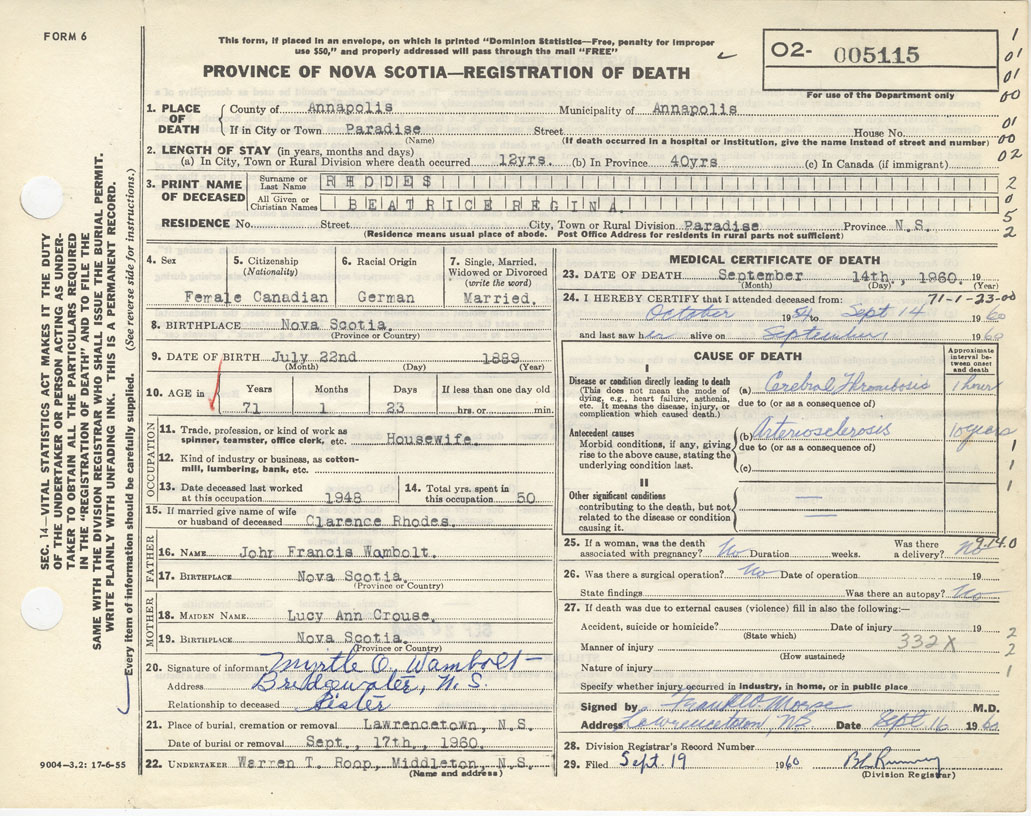 FORM 6
This form, if placed in an envelope, on which is printed "Dominion Statistics—Free, penalty for improper
use $50," and properly addressed will pass through the mail "FREE"
PROVINCE OF NOVA SCOTIA—REGISTRATION OF DEATH
O2- 005115
For use of the Department only
1
01
01
00
01
00
02
2
0
5
2
1. PLACE OF DEATH
County of Annapolis Municipality of Annapolis
If in City or Town Paradise Street House No.
(Name) (If death occurred in a hospital or institution, give the name instead of street and number)
2. LENGTH OF STAY (in years, months and days)
(a) In City, Town or Rural Division where death occurred 12yrs. (b) In Province 40yrs (c) In Canada (if immigrant)
3. PRINT NAME OF DECEASED
Surname or Last Name RHODES
All Given or Christian Names BEATRICE REGINA
RESIDENCE No. Street City, Town or Rural Division Paradise Province N.S.
(Residence means usual place of abode. Post Office Address for residents in rural parts not sufficient)
4. Sex Female
5. Citizenship (Nationality) Canadian
6. Racial Origin German
7. Single, Married, Widowed or Divorced (write the word) Married.
8. BIRTHPLACE Nova Scotia.
(Province or Country)
9. DATE OF BIRTH July 22nd 1889
(Month) (Day) (Year)
10. AGE in Years Months Days If less than one day old
71 1 23 hrs. or min.
OCCUPATION
11. Trade, profession, or kind of work as
spinner, teamster, office clerk, etc. Housewife.
12. Kind of industry or business, as cotton-
mill, lumbering, bank, etc.
13. Date deceased last worked at this occupation 1948
14. Total yrs. spent in this occupation 50
15. If married give name of wife
or husband of deceased Clarence Rhodes.
FATHER
16. NAME John Francis Wambolt.
17. BIRTHPLACE Nova Scotia.
(Province or Country)
MOTHER
18. MAIDEN NAME Lucy Ann Crouse.
19. BIRTHPLACE Nova Scotia.
(Province or Country)
20. Signature of informant Myrtle O. Wambolt
Address Bridgewater, N.S.
Relationship to deceased Sister
21. Place of burial, cremation or removal Lawrencetown, N.S.
Date of burial or removal Sept., 17th., 1960.
22. UNDERTAKER Warren T. Roop, Middleton, N.S.
(Name and address)
MEDICAL CERTIFICATE OF DEATH
23. DATE OF DEATH September 14th., 1960. 19
(Month) (Day) (Year)
24. I HEREBY CERTIFY that I attended deceased from: 71-1-23-00
October 1954 to Sept 14 1960
and last saw her alive on September 1960
CAUSE OF DEATH
Approximate interval between onset and death
I
Disease or condition directly leading to death
(This does not mean the mode of
dying, e.g., heart failure, asthenia,
etc. It means the disease, injury, or
complication which caused death.)
(a) Cerebral Thrombosis 1 hour
due to (or as a consequence of)
Antecedent causes
Morbid conditions, if any, giving
rise to the above cause, stating the
underlying condition last.
(b) Arteriosclerosis 10 years
due to (or as a consequence of)
(c)
1
1
1
II
Other significant conditions
contributing to the death, but not
related to the disease or condition
causing it.
25. If a woman, was the death
associated with pregnancy? No Duration weeks. Was there a delivery? No
9-14.0
26. Was there a surgical operation? No Date of operation 19
State findings Was there an autopsy? No
27. If death was due to external causes (violence) fill in also the following:—
Accident, suicide or homicide? Date of injury 19
(State which)
Manner of injury 332X
(How sustained)
Nature of injury
2
2
1
Specify whether injury occurred in industry, in home, or in public place
Signed by Frank Morse M.D.
Address Lawrencetown, NS Date Sept 16 1960
28. Division Registrar's Record Number
29. Filed Sept. 19 1960
(Division Registrar)
SEC. 14—VITAL STATISTICS ACT MAKES IT THE DUTY
OF THE UNDERTAKER OR PERSON ACTING AS UNDER-
TAKER TO OBTAIN ALL THE PARTICULARS REQUIRED
IN THE "REGISTRATION OF DEATH" AND TO FILE THE
SAME WITH THE DIVISION REGISTRAR WHO SHALL ISSUE THE BURIAL PERMIT.
WRITE PLAINLY WITH UNFADING INK. THIS IS A PERMANENT RECORD.
Every item of information should be carefully supplied. (See reverse side for instructions.)
9004—3.2: 17-6-55